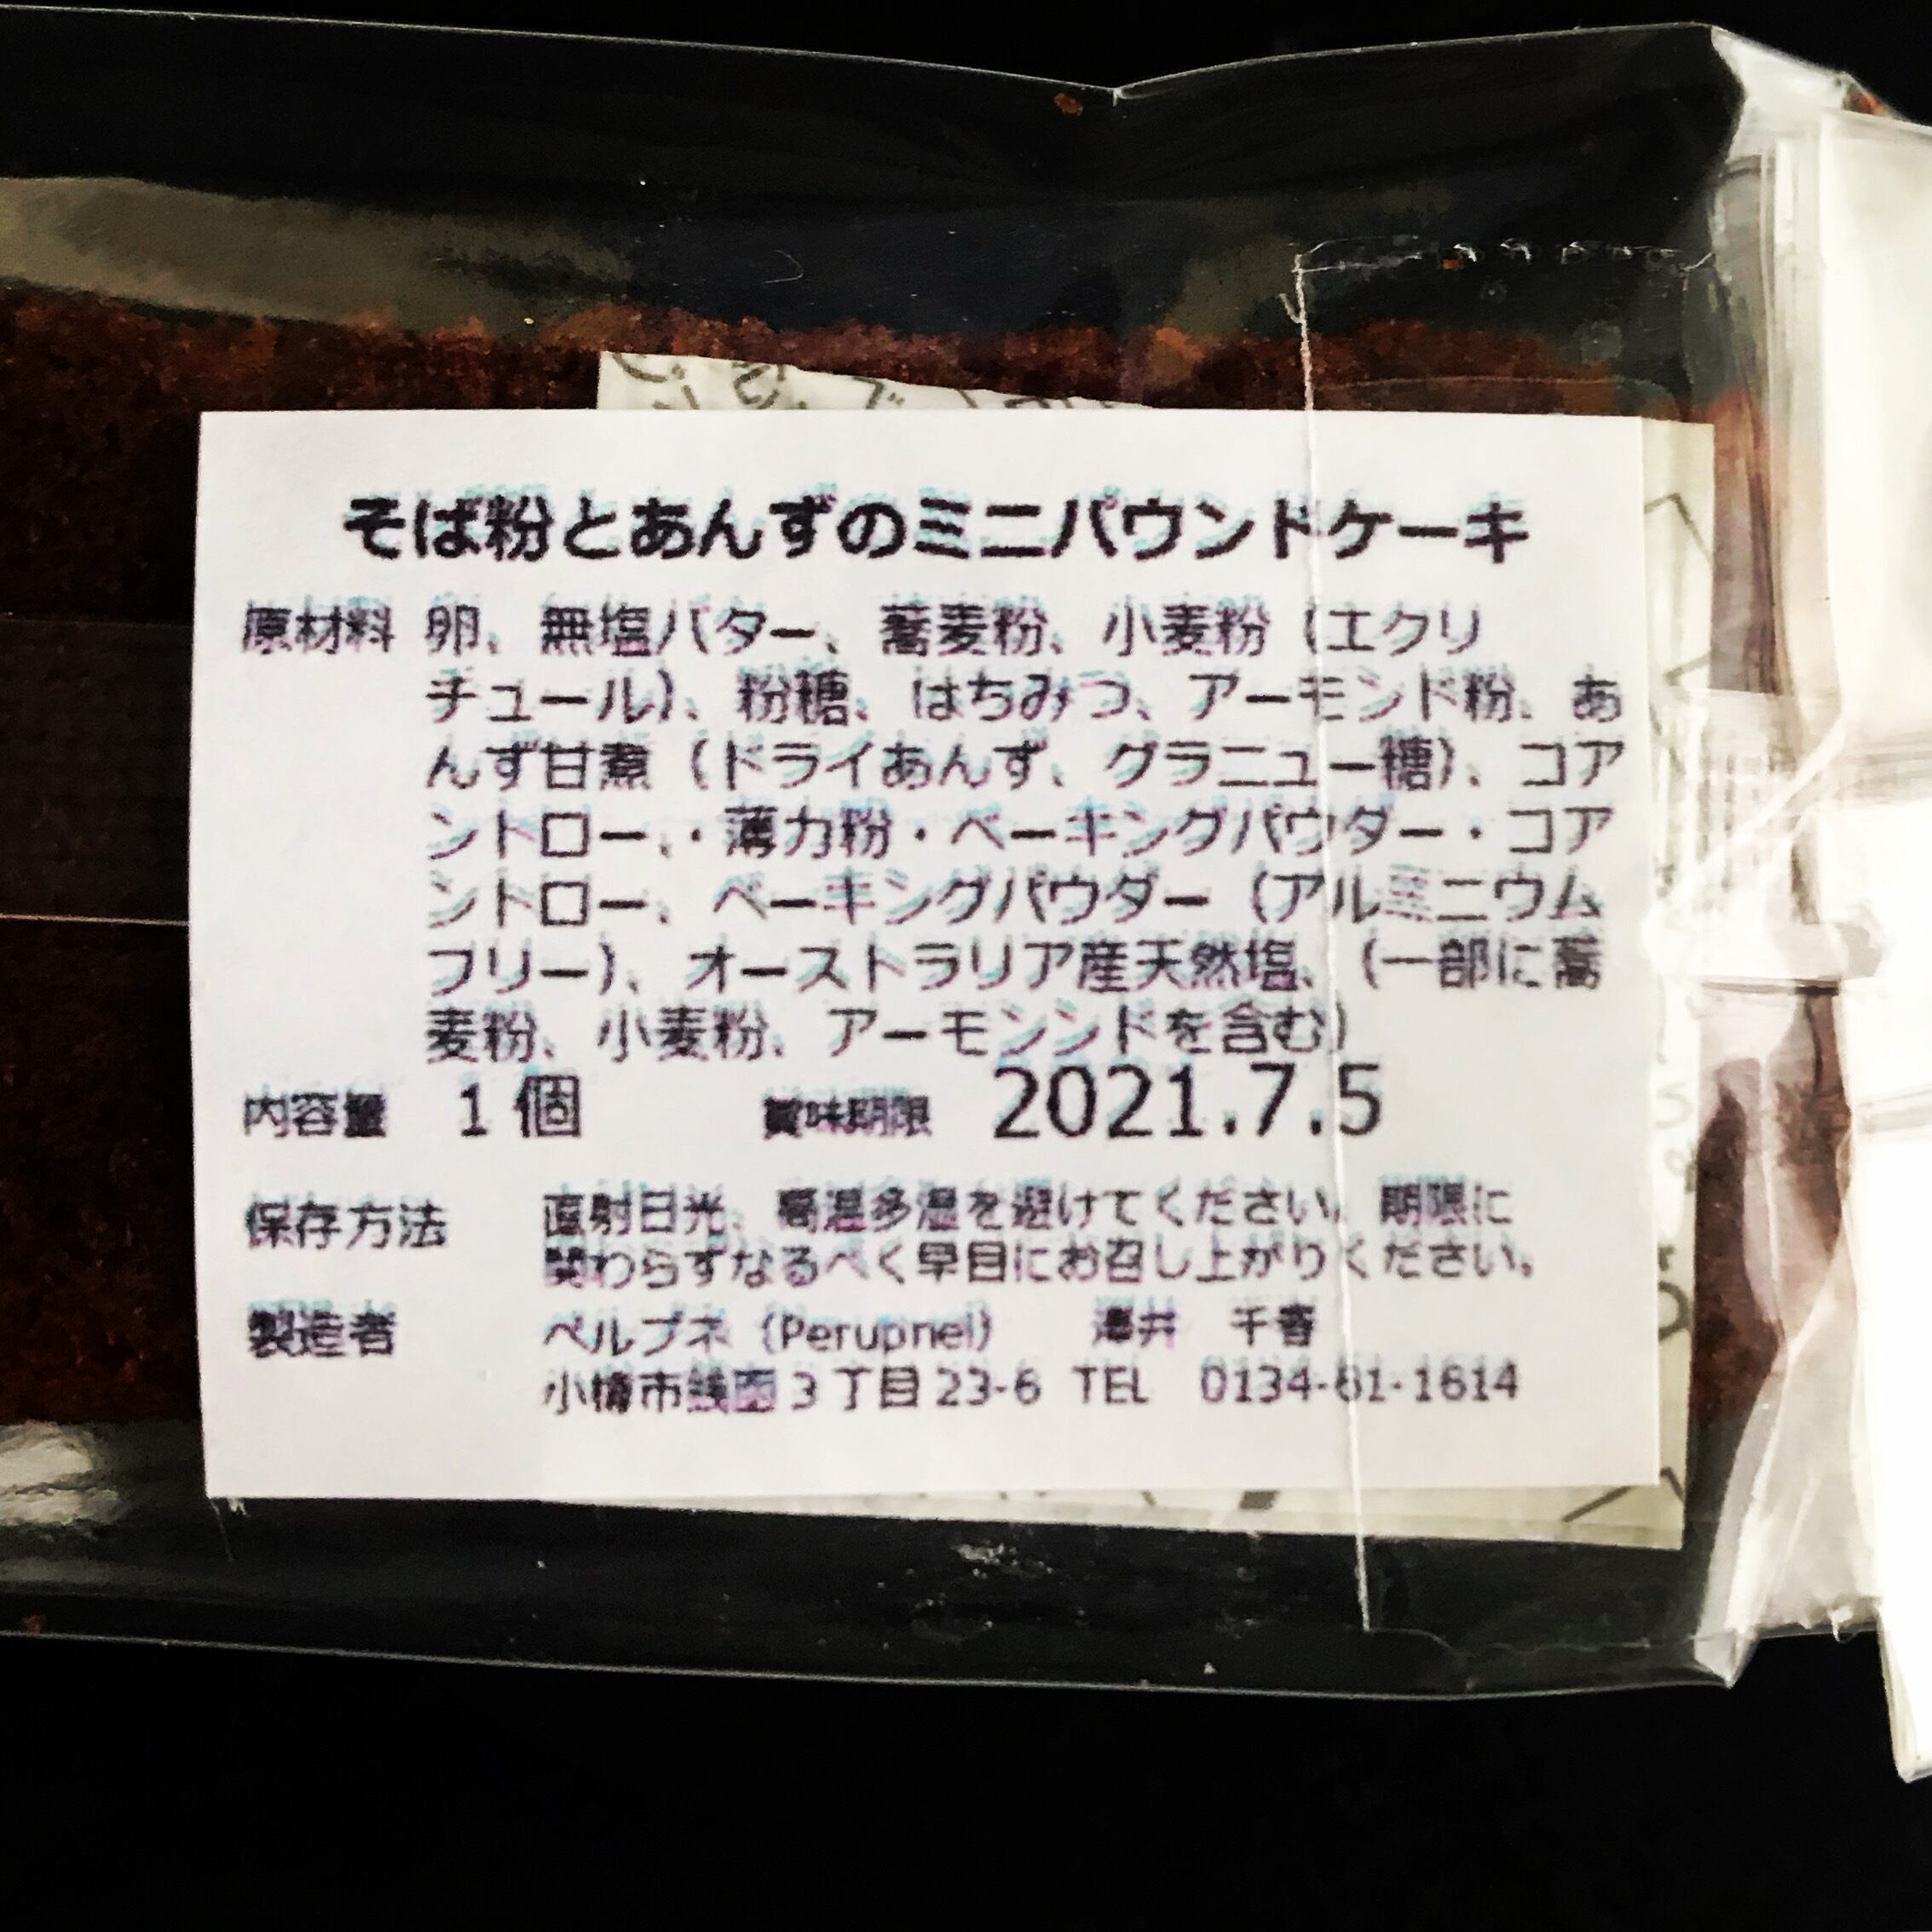 そば粉とあんずのミニパウンドケーキ
原材料 卵、無塩バター、蕎麦粉、小麦粉（エクリ
チュール）、粉糖、はちみつ、アーモンド粉、あ
んず甘煮（ドライあんず、グラニュー糖）、コア
ントロー、・薄力粉・ベーキングパウダー・コア
ントロー、ベーキングパウダー（アルミニウム
フリー）、オーストラリア産天然塩、（一部に蕎
麦粉、小麦粉、アーモンンドを含む）
内容量 1個 賞味期限 2021.7.5
保存方法 直射日光、高温多湿を避けてください。期限に
関わらずなるべく早目にお召し上がりください。
製造者 ペルプネ（Perupnel） 澤井 千春
小樽市銭函3丁目23-6 TEL 0134-61-1614